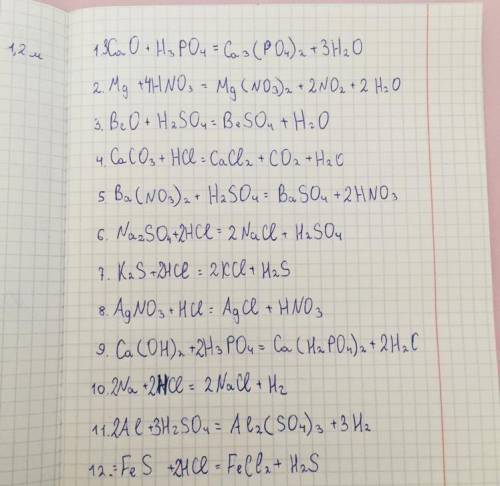 1,2 м
1. 3CaO + H3PO4 = Ca3(PO4)2 + 3H2O
2. Mg + 4HNO3 = Mg(NO3)2 + 2NO2 + 2H2O
3. BeO + H2SO4 = BeSO4 + H2O
4. CaCO3 + HCl = CaCl2 + CO2 + H2O
5. Ba(NO3)2 + H2SO4 = BaSO4 + 2HNO3
6. Na2SO4 + 2HCl = 2NaCl + H2SO4
7. K2S + 2HCl = 2KCl + H2S
8. AgNO3 + HCl = AgCl + HNO3
9. Ca(OH)2 + 2H3PO4 = Ca(H2PO4)2 + 2H2O
10. 2Na + 2HCl = 2NaCl + H2
11. 2Al + 3H2SO4 = Al2(SO4)3 + 3H2
12. FeS + 2HCl = FeCl2 + H2S